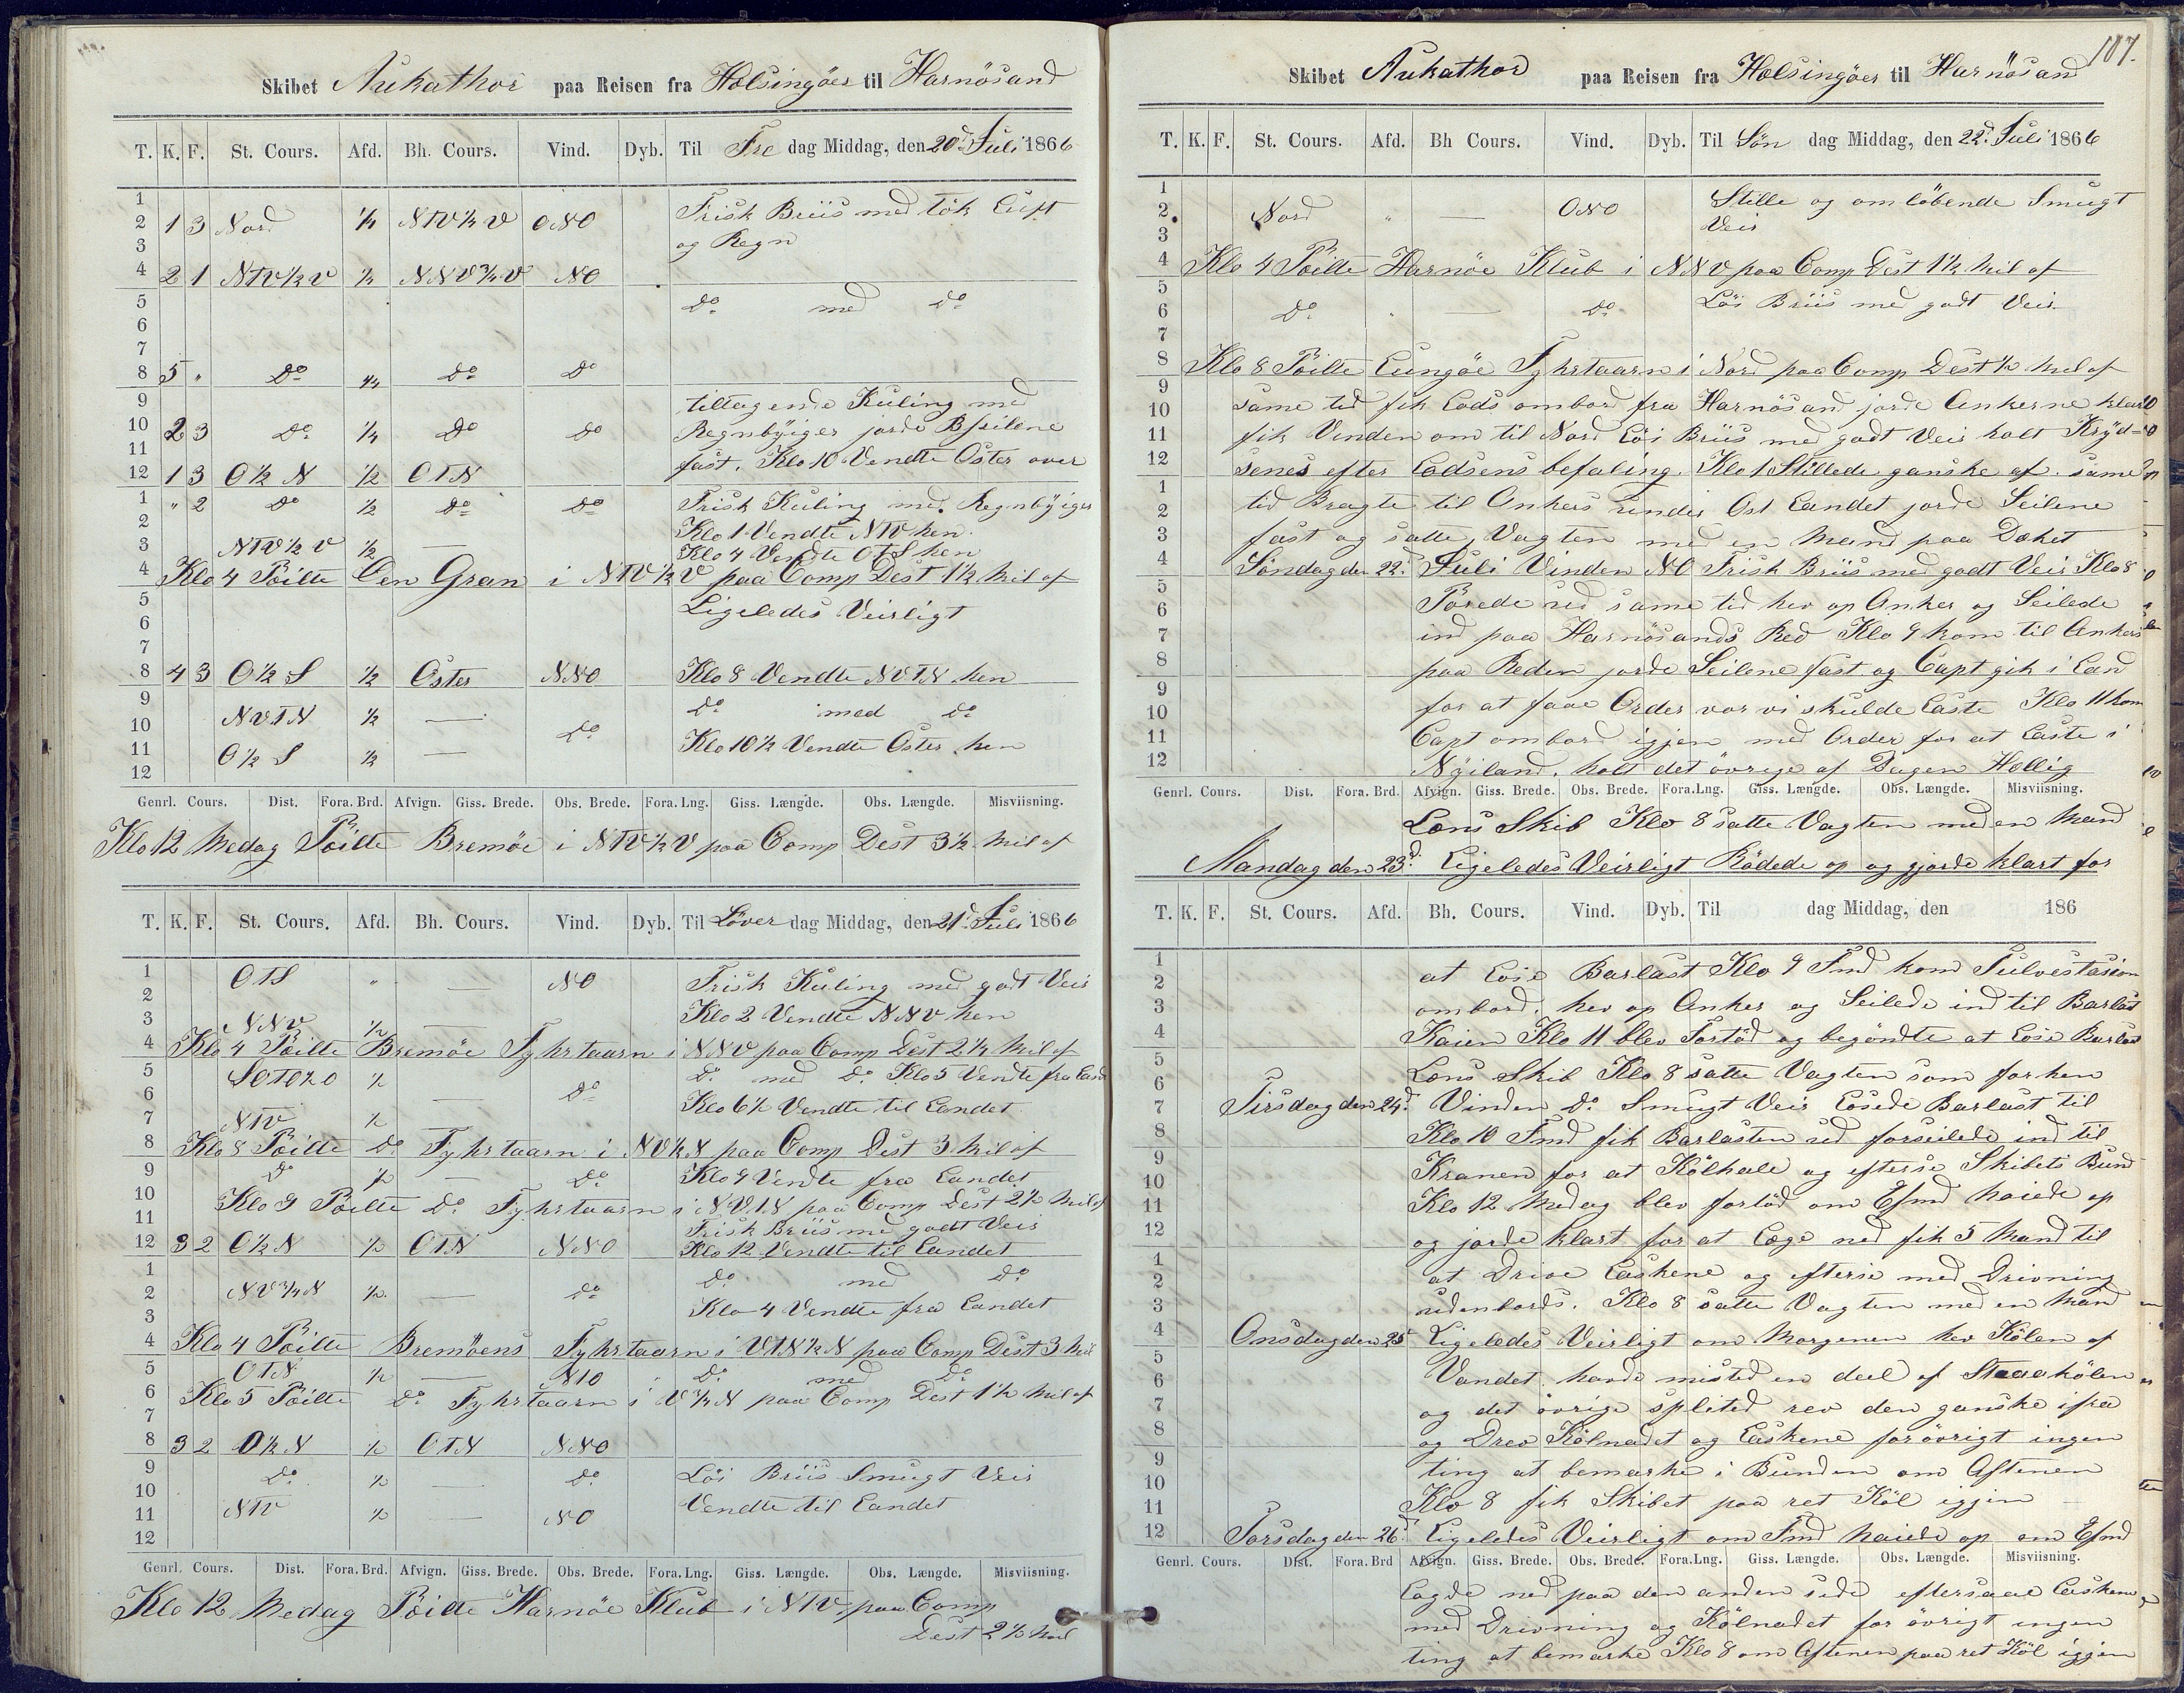 Skibet Aukathor paa Reisen fra Helsingöer til Harnösand
T. K. F. St. Cours. Afd. Bh. Cours. Vind. Dyb. Til Fre dag Middag, den 20d Juli 1866
1
2 1 3 Nord 1/4 NTV 1/2 V ONO Frisk Briis med tök Luft
3 og Regn
4 2 1 NTV 1/2 V 1/2 NNV 3/4 V NO
5 Do med Do
6
7
8 5 " Do 1/4 Do Do
9 tiltagende Kuling med
10 2 3 Do 1/4 Do Do Regnbÿiger jorde Bseilene
11 fast. Klo 10 Vendte Öster over
12 1 3 O 1/2 N 1/2 OTN
1 " 2 Do 1/2 Do Do Frisk Kuling med Regnbÿiger
2 Klo 1 Vendte NTV hen.
3 NTV 1/2 V 1/2 — Klo 4 Vendte OTS hen
4 Klo 4 Pöilte Gran i NTV 1/2 V paa Comp Dest 1 1/2 Mil af
5 Ligeledes Veirligt
6
7
8 4 3 O 1/2 S 1/2 Öster NNO Klo 8 Vendte NVTN hen
9 Do med Do
10 NVTN 1/2 — Do
11 O 1/2 S 1/2 — Klo 10 1/2 Vendte Öster hen
12
Genrl. Cours. Dist. Fora. Brd. Afvign. Giss. Brede. Obs. Brede. Fora. Lng. Giss. Længde. Obs. Længde. Misviisning.
Klo 12 Medag Pöilte Bremöe i NTV 1/2 V paa Comp Dest 3 1/2 Mil af
T. K. F. St. Cours. Afd. Bh. Cours. Vind. Dyb. Til Löver dag Middag, den 21d Juli 1866
1 OTS " — NO Frisk Kuling med godt Veir
2 Klo 2 Vendte NNV hen
3 NNV 1/2 —
4 Klo 4 Pöilte Bremöe Fyhrtaarn i NNV paa Comp Dest 2 1/2 Mil af
5 1/2 Do med Do Klo 5 Vendte fra Land
6 — Do Klo 6 1/2 Vendte til Landet
7 NTV 1/2
8 Klo 8 Pöilte Do Fyhrtaarn i NV 1/2 N paa Comp Dest 3 Mil af
9 Do 1/2 — Do Klo 9 Vendte fra Landet
10 Klo 9 Pöilte Do Fyhrtaarn i NVTN paa Comp Dest 2 1/2 Mil af
11 Frisk Briis med godt Veir
12 3 2 O 1/2 N 1/2 OTN NNO Klo 12 Vendte til Landet
1 Do med Do
2 NV 3/4 N 1/2 — Do
3 Klo 4 Vendte fra Landet
4 Klo 4 Pöilte Bremöens Fyhrtaarn i VTN 1/2 N paa Comp Dest 3 Mil
5 OTN 1/2 — NNO Do med Do
6 Klo 5 Pöilte Do Fyhrtaarn i V 3/4 N paa Comp Dest 1 1/2 Mil af
7
8 3 2 O 1/2 N 1/2 OTN NNO
9 Do 1/2 — Do Löi Briis Smugt Veir
10
11 NTV 1/2 — NO Vendte til Landet
12
Genrl. Cours. Dist. Fora. Brd. Afvign. Giss. Brede. Obs. Brede. Fora. Lng. Giss. Længde. Obs. Længde. Misviisning.
Klo 12 Medag Pöilte Harnöe Klub i NTV paa Comp
Dest 2 1/2 Mil
107.
Skibet Aukathor paa Reisen fra Helsingöer til Harnösand
T. K. F. St. Cours. Afd. Bh Cours. Vind. Dyb. Til Sön dag Middag, den 22d Juli 1866
1 Stille og omlöbende Smugt
2 Nord " — ONO Veir
3
4 Klo 4 Pöilte Harnöe Klub i NNV paa Comp Dest 1 1/2 Mil af
5 Löi Briis med godt Veir
6 Do " — Do
7
8 Klo 8 Pöilte Lungöe Fyhrtaarn i Nord paa Comp Dest 1/2 Mil af
9 same tid fik Lods ombord fra Harnösand jorde Ankerne klar
10 fik Vinden om til Nord Löi Briis med godt Veir holt Krÿd=
11 senes efter Lodsens befaling. Klo 1 Stillede ganske af. same
12
1 tid Bragte til Ankers under Ost Landet jorde Seilene
2 fast og satte Vagten med en Mand paa Dæket
3
4 Söndag den 22d Juli Vinden NO Frisk Briis med godt Veir Klo 8
5 Pörede ud same tid hev op Anker og Seilede
6 ind paa Harnösands Red Klo 9 kom til Ankers
7
8 paa Reden jorde Seilene fast og Capt gik i Land
9 for at faae Order vor vi skulde Laste Klo 11 kom
10 Capt ombord igjen med Order for at Laste i
11
12 Nÿiland. holt det övrige af Dagen Hellig
Genrl. Cours. Dist. Fora. Brd. Afvign. Giss. Brede. Obs. Brede. Fora. Lng. Giss. Længde. Obs. Længde. Misviisning.
Læns Skib Klo 8 satte Vagten med en Mand
Mandag den 23d Ligeledes Veirligt Rödede op og gjorde klart for
T. K. F. St. Cours. Afd. Bh. Cours. Vind. Dyb. Til dag Middag, den 186
1 at Losse Barlast Klo 9 Fmd kom
2 ombord. hev op Anker og Seilede ind til Barlast
3
4 Kaien Klo 11 blev Fortöd og begöndte at Losse Barlast
5 Læns Skib Klo 8 satte Vagten som forhen
6
7 Tirsdag den 24d Vinden Do Smugt Veir Lossede Barlast til
8 Klo 10 Fmd fik Barlasten ud forseilede ind til
9 Kranen for at Kölhale og efterse Skibets Bund
10
11 Klo 12 Medag blev fortöd om Efmd haiede op
12 og jorde klart for at Læge ned fik 5 Mand til
1 at Drive Laskene og efterse med Drivning
2 udenbords. Klo 8 satte Vagten med en Mand
3
4 Onsdag den 25 Ligeledes Veirligt om Morgenen hev Kölen af
5 Vandet. havde misted en deel af Staaakölen
6
7 og det övrige splited rev den ganske ifra
8 og Drev Kölnadet og Laskene forövrigt ingen
9 ting at bemærke i Bunden om Aftenen
10
11 Klo 8 fik Skibet paa ret Köl igjen
12 Torsdag den 26d Ligeledes Veirligt om Fmd haiede op om Efmd
Genrl. Cours. Dist. Fora. Brd Afvign. Giss. Brede. Obs. Brede. Fora. Lng. Giss. Længde. Obs. Længde. Misviisning.
Lagde ned paa den anden side eftersaae Laskene
med Drivning og Kölnadet for övrigt ingen
ting at bemærke Klo 8 om Aftenen paa ret Köl igjen